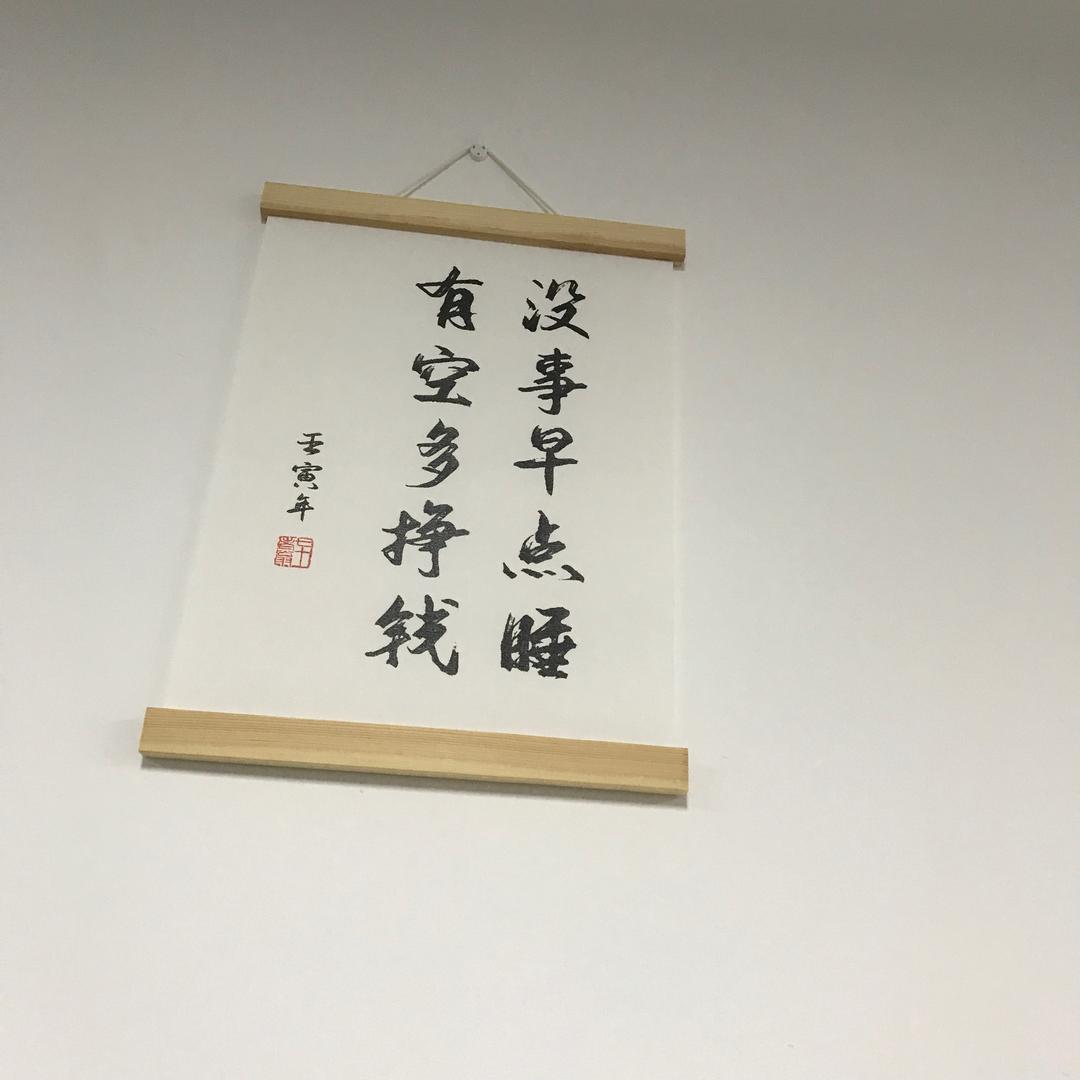 没事早点睡
有空多挣钱
壬寅年